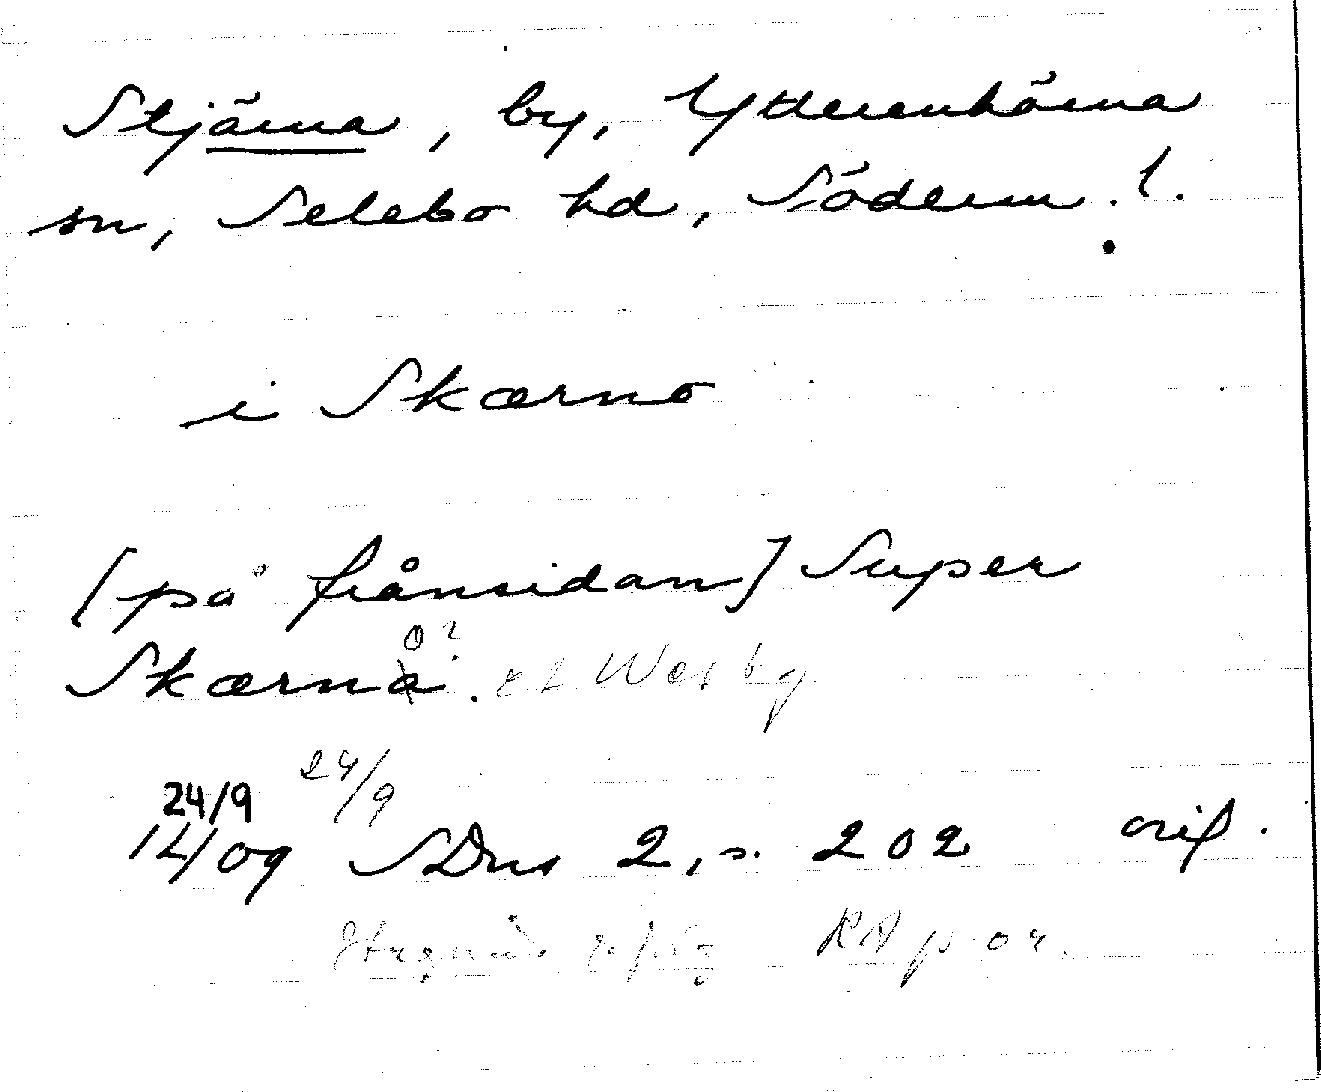 Skjärna, by, Ytterenhörna
sn, Selebo hd, Söderm. l.
i Skærno
[på frånsidan] Super
o?
Skærna. et Wesby
24/9 24/9
14/09 SDns 2, s. 202 orig.
RA p or.